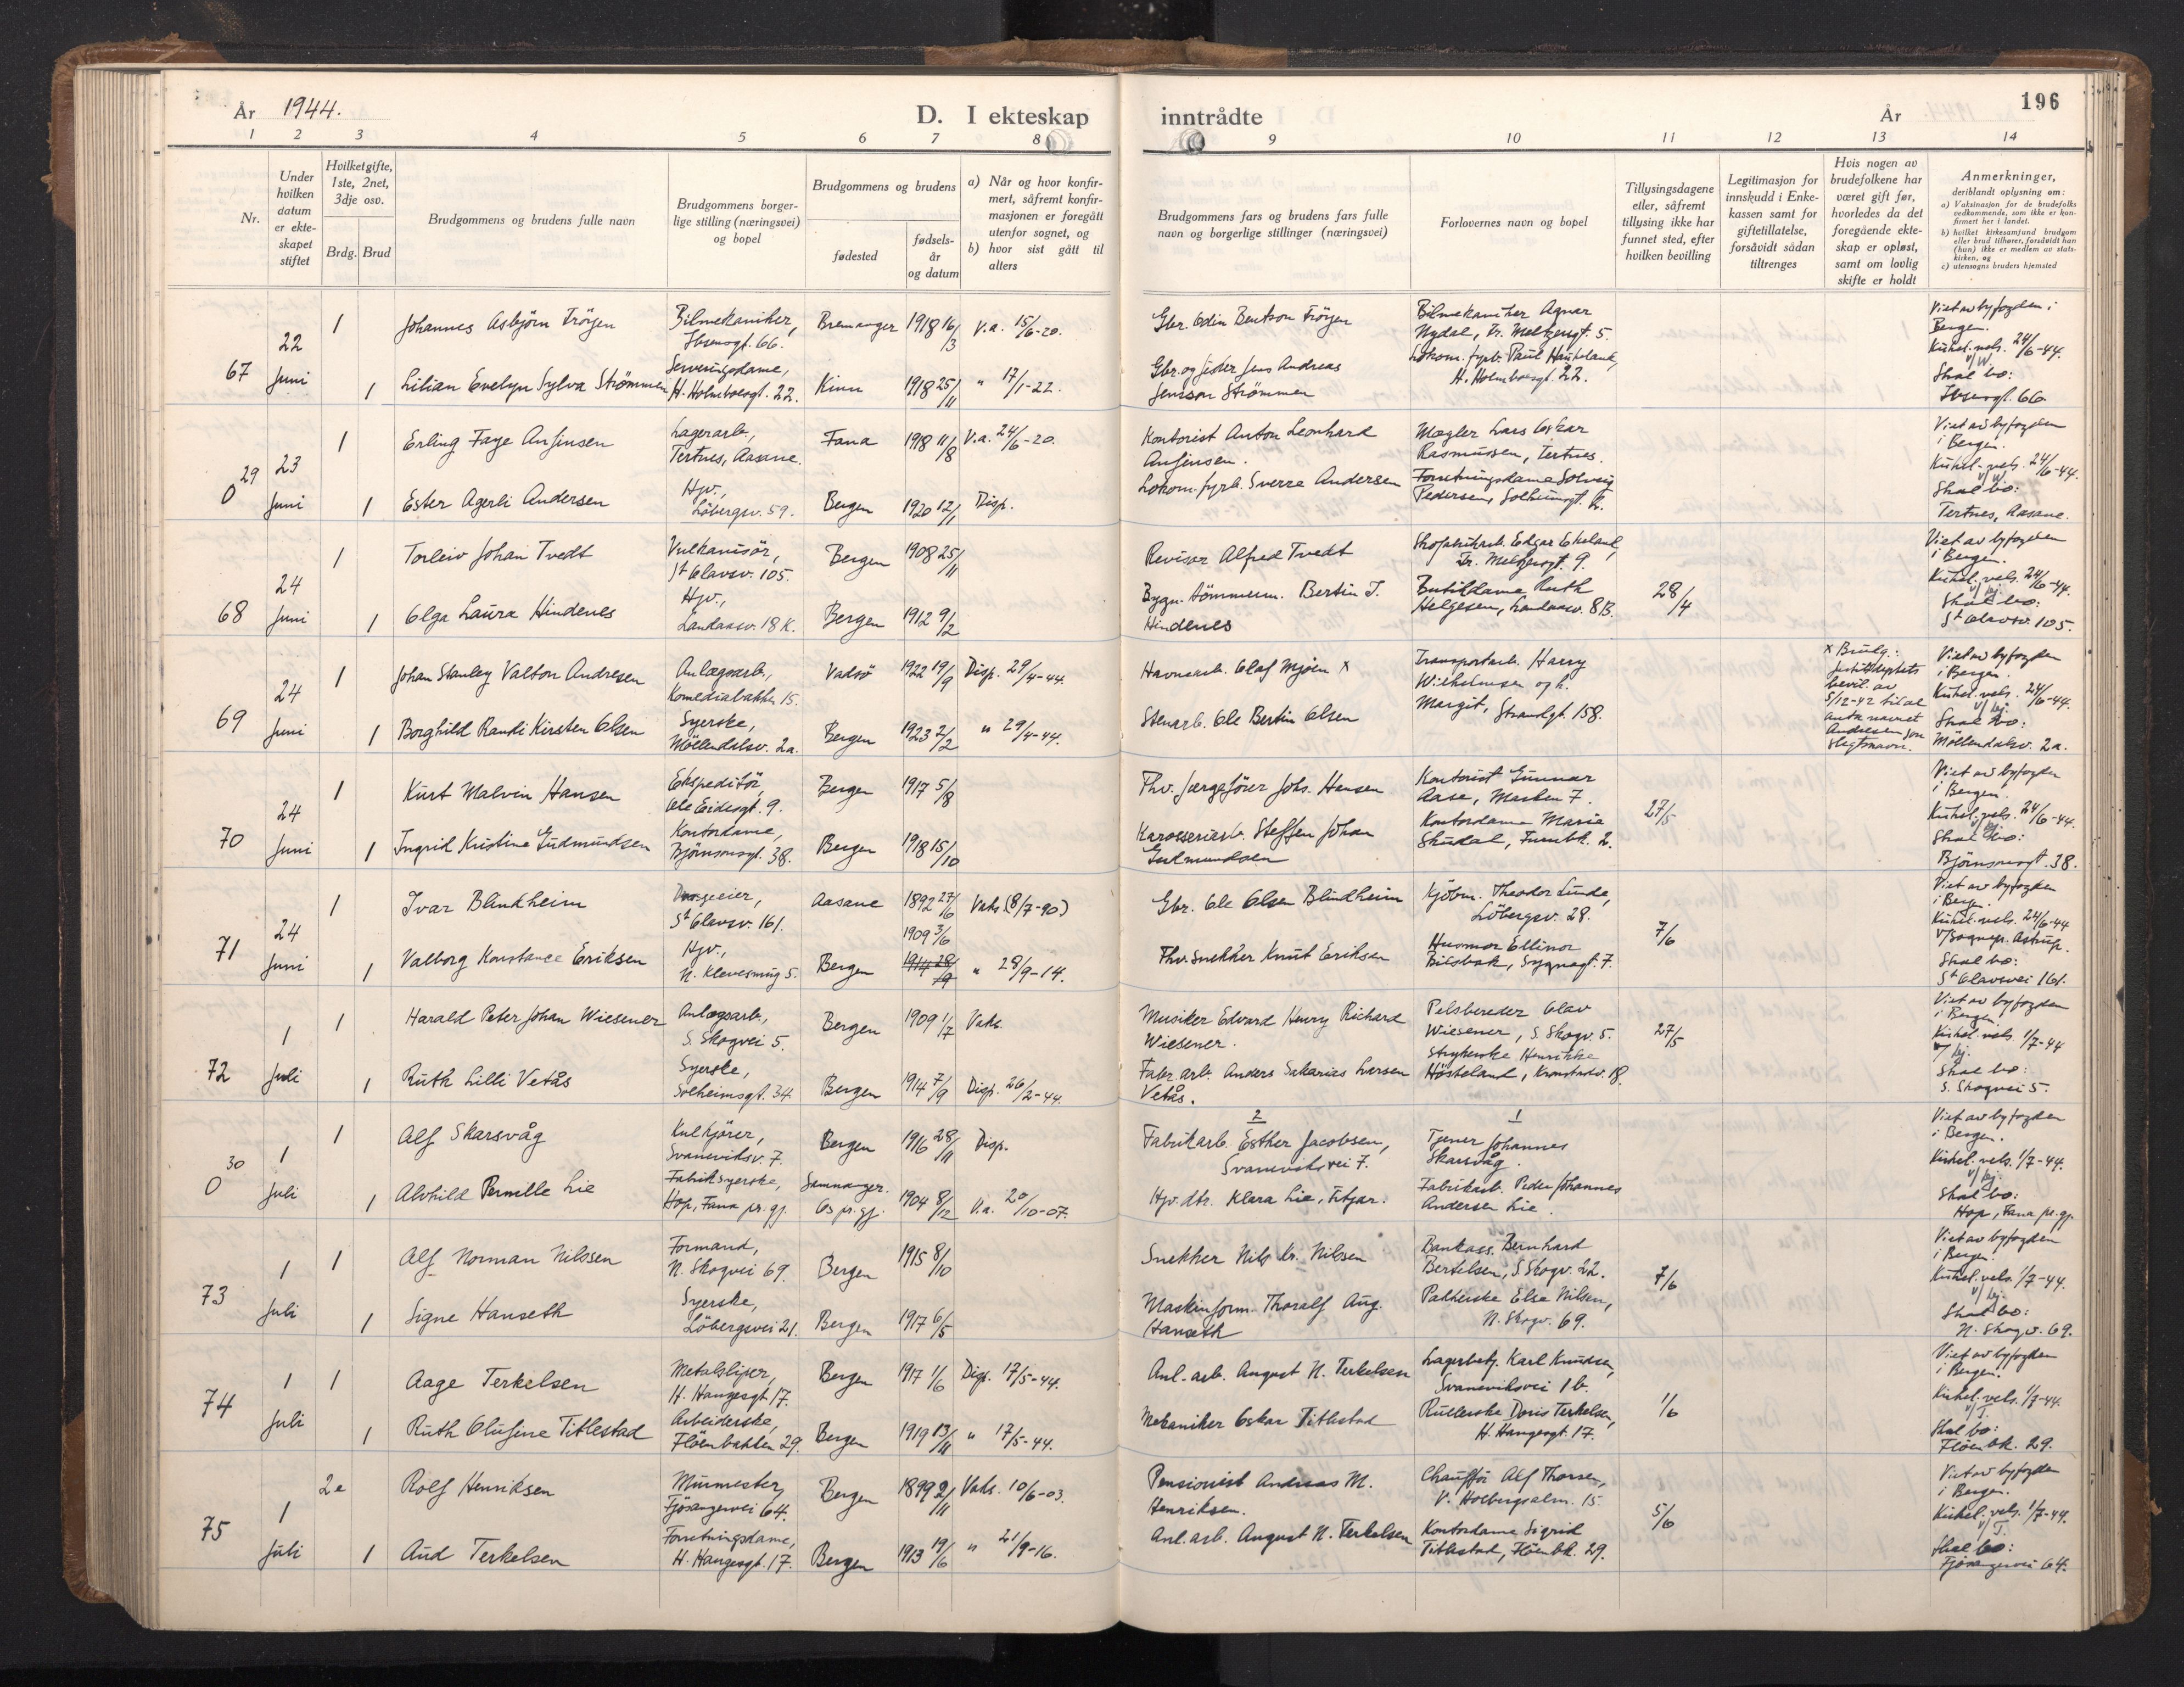 År 1944.
D. I ekteskap inntrådte
År
196
1 2 3 4 5 6 7 8 9 10 11 12 13 14
Nr.
Under hvilken datum er ekteskapet stiftet
Hvilket gifte, 1ste, 2net, 3dje osv.
Brdg. Brud
Brudgommens og brudens fulle navn
Brudgommens borgerlige stilling (næringsvei) og bopel
Brudgommens og brudens
fødested
fødselsår og datum
a) Når og hvor konfirmert, såfremt konfirmasjonen er foregått utenfor sognet, og
b) hvor sist gått til alters
Brudgommens fars og brudens fars fulle navn og borgerlige stillinger (næringsvei)
Forlovernes navn og bopel
Tillysingsdagene eller, såfremt tillysing ikke har funnet sted, efter hvilken bevilling
Legitimasjon for innskudd i Enkekassen samt for giftetillatelse, forsåvidt sådan tiltrenges
Hvis nogen av brudefolkene har været gift før, hvorledes da det foregående ekteskap er opløst, samt om lovlig skifte er holdt
Anmerkninger,
deriblandt oplysning om:
a) Vaksinasjon for de brudefolks vedkommende, som ikke er konfirmert her i landet.
b) hvilket kirkesamfund brudgom eller brud tilhører, forsåvidt han (hun) ikke er medlem av statskirken, og
c) utensogns bruders hjemsted
67 22 Juni
1 Johannes Asbjörn Fröyen Bilmekaniker, Ibsensgt. 66. Bremanger 1918 16/3 V.a. 15/6-20.
Gbr. Odin Bentson Fröyen
Bilmekaniker Agnar Nydal, Dr. Meltzersgt. 5.
1 Lilian Evelyn Sylva Strömmen Serveringsdame, H. Holmboesgt. 22. Kinn 1918 25/11 " 17/1-22.
Gbr. og fisker Jens Andreas Jensson Strömmen
Lokom. fyrb. Paul Haukeland, H. Holmboesgt. 22.
Viet av byfogden i Bergen.
Kirkel. vels. 24/6-44.
v/W.
Skal bo:
Ibsensgt. 66
29 0 23 Juni
1 Erling Faye Anfinsen Lagerarb., Tertnes, Aasane. Fana 1918 11/8 V.a. 24/6-20.
Kontorist Anton Leonhard Anfinsen.
Mægler Lars Oskar Rasmussen, Tertnes.
1 Ester Agerli Andersen Hjv., Löbergsv. 59. Bergen 1920 12/1 Disp.
Lokom. fyrb. Sverre Andersen
Forretningsdame Solveig Pedersen, Solheimsgt.
Viet av byfogden i Bergen.
Kirkel. vels. 24/6-44.
v/W
Skal bo:
Tertnes, Aasane.
68 24 Juni
1 Torleiv Johan Tvedt Vulkanisör, St Olavsv. 105. Bergen 1908 25/11
Revisor Alfred Tvedt
Skofabrikarb. Edgar Ekeland, Dr. Meltzersgt. 9.
1 Olga Laura Hindenes Hjv., Landaasv. 18 K. Bergen 1912 9/2
Bygn. tömmerm. Bertin J. Hindenes
Butikkdame Ruth Helgesen, Landaasv. 8 B.
28/4
Viet av byfogden i Bergen.
Kirkel. vels. 24/6-44.
v/hj.
Skal bo:
St Olavsv. 105.
69 24 Juni
1 Johan Stanley Valton Andresen Anlægsarb., Komediebakken 15. Vadsö 1922 19/9 Disp. 29/4-44.
Havnearb. Olaf Mjöen x
Transportarb. Harry Wilhelmsen og h. Margit, Strandgt. 158.
1 Borghild Randi Kirsten Olsen Syerske, Möllendalsv. 2a. Bergen 1923 2/2 " 29/4-44.
Stenarb. Ole Bertin Olsen
x Brudg.: Justitdeptets bevil. av 5/12-42 til at anta navnet Andresen som slegtsnavn.
Viet av byfogden i Bergen.
Kirkel. vels. 24/6-44.
v/hj.
Skal bo:
Möllendalsv. 2a.
70 24 Juni
1 Kurt Malvin Hansen Ekspeditör, Ole Eidesgt. 9. Bergen 1917 5/8
Fhv. færgeförer Johs. Hansen
Kontorist Gunnar Aase, Marken 7.
1 Ingrid Kristine Gudmundsen Kontordame, Björnsonsgt. 38. Bergen 1918 15/10
Karosseriarb. Steffen Johan Gudmundsen
Kontordame Maria Skudal, Furubk. 2.
27/5
Viet av byfogden i Bergen.
Kirkel. vels. 24/6-44.
v/hj.
Skal bo:
Björnsonsgt. 38.
71 24 Juni
1 Ivar Blindheim St Olavsv. 161. Aasane 1892 27/6 Vaks. (8/7-90)
Gbr. Ole Olsen Blindheim
Kjöbm. Theodor Lunde, Löbergsv. 28.
1 Valborg Konstance Eriksen Hjv., N. Klevesmug 5. Bergen 1909 3/6 1914 28/9 " 28/9-14.
Fhv. snekker Knut Eriksen
Husmor Ellinor Bilsbak, Sygnagt. 7.
7/6
Viet av byfogden i Bergen.
Kirkel. vels. 24/6-44
v/Sognepr. Astrup.
Skal bo:
St Olavsvei 161.
72 1 Juli
1 Harald Peter Johan Wiesener Anlægsarb., S. Skogvei 5. Bergen 1909 1/7 Vaks.
Musiker Edvard Henry Richard Wiesener.
Pelsbereder Olav Wiesener, S. Skogv. 5.
1 Ruth Lilli Vetås Syerske, Solheimsgt. 34 Bergen 1914 7/9 Disp. 26/2-44.
Fabr. arb. Anders Sakarias Larsen Vetås.
Strykerske Henrikke Hösteland, Kronstadv. 18.
27/5
Viet av byfogden i Bergen
Kirkel. vels. 1/7-44
v/hj.
Skal bo:
S. Skogvei 5.
30 0 1 Juli
1 Alf Skarsvåg Kulkjörer, Svaneviksv. 7. Bergen 1916 28/11 Disp.
2
Fabrikarb. Esther Jacobsen, Svaneviksvei 7.
1
Tjener Johannes Skarsvåg.
1 Alvhild Pernille Lie Fabriksyerske, Hop, Fana pr.gj. Samnanger. Os pr.gj. 1904 8/12 V.a. 20/10-07.
Hjv. dtr. Klara Lie, Fitjar.
Fabrikarb. Peder Johannes Andersen Lie.
Viet av byfogden i Bergen.
Kirkel. vels. 1/7-44.
v/hj.
Skal bo:
Hop, Fana pr.gj.
73 1 Juli
1 Alf Norman Nilssen Formand, N. Skogvei 69. Bergen 1915 8/10
Snekker Nils Kr. Nilssen
Bankass. Bernhard Bertelsen, S. Skogv. 22.
1 Signe Hanseth Syerske, Löbergsvei 21. Bergen 1917 6/5
Maskinform. Thoralf Aug. Hanseth
Pakkerske Else Nilsen, N. Skogv. 69.
7/6
Viet av byfogden i Bergen
Kirkel. vels. 1/7-44.
v/hj.
Skal bo:
N. Skogv. 69.
74 1 Juli
1 Aage Terkelsen Metalsliper, H. Haugesgt. 17. Bergen 1917 1/6 Disp. 17/5-44.
Anl.-arb. August N. Terkelsen
Lagerbetj. Karl Knudsen, Svaneviksvei 1b.
1 Ruth Olufine Titlestad Arbeiderske, Flöenbakken 29. Bergen 1919 13/11 " 17/5-44.
Mekaniker Oskar Titlestad
Rullerske Doris Terkelsen, H. Haugesgt. 17.
1/6
Viet av byfogden i Bergen.
Kirkel. vels. 1/7-44.
v/T.
Skal bo:
Flöenbk. 29.
75 1 Juli
2e Rolf Henriksen Murmester, Fjösangervei 64. Bergen 1899 2/11 Vaks. 10/6-03.
Pensionist Andreas M. Henriksen.
Chaufför Alf Thorsen, V. Holbergsalm. 15.
1 Aud Terkelsen Forretningsdame, H. Haugesgt. 17. Bergen 1913 19/6 " 21/9-16.
Anl. arb. August N. Terkelsen
Kontordame Sigrid Titlestad, Flöenbk. 29.
5/6
Viet av byfogden i Bergen.
Kirkel. vels. 1/7-44.
v/T.
Skal bo:
Fjösangervei 64.